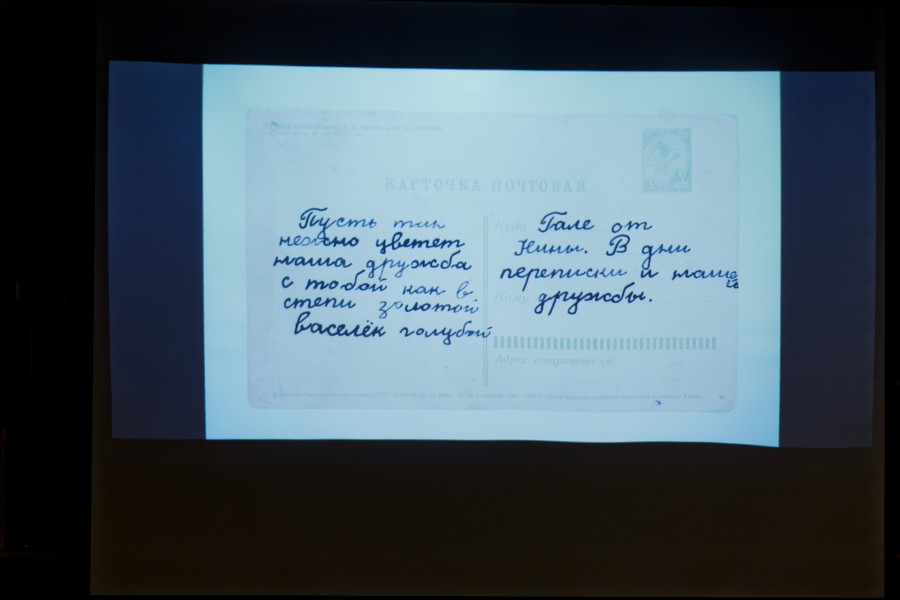 КАРТОЧКА ПОЧТОВАЯ
Пусть так
нежно цветет
наша дружба
с тобой как в
степи золотой
васелёк голубой
Куда
Гале от
Нины. В дни
переписки и нашей
Кому
дружбы.
Адрес отправителя: